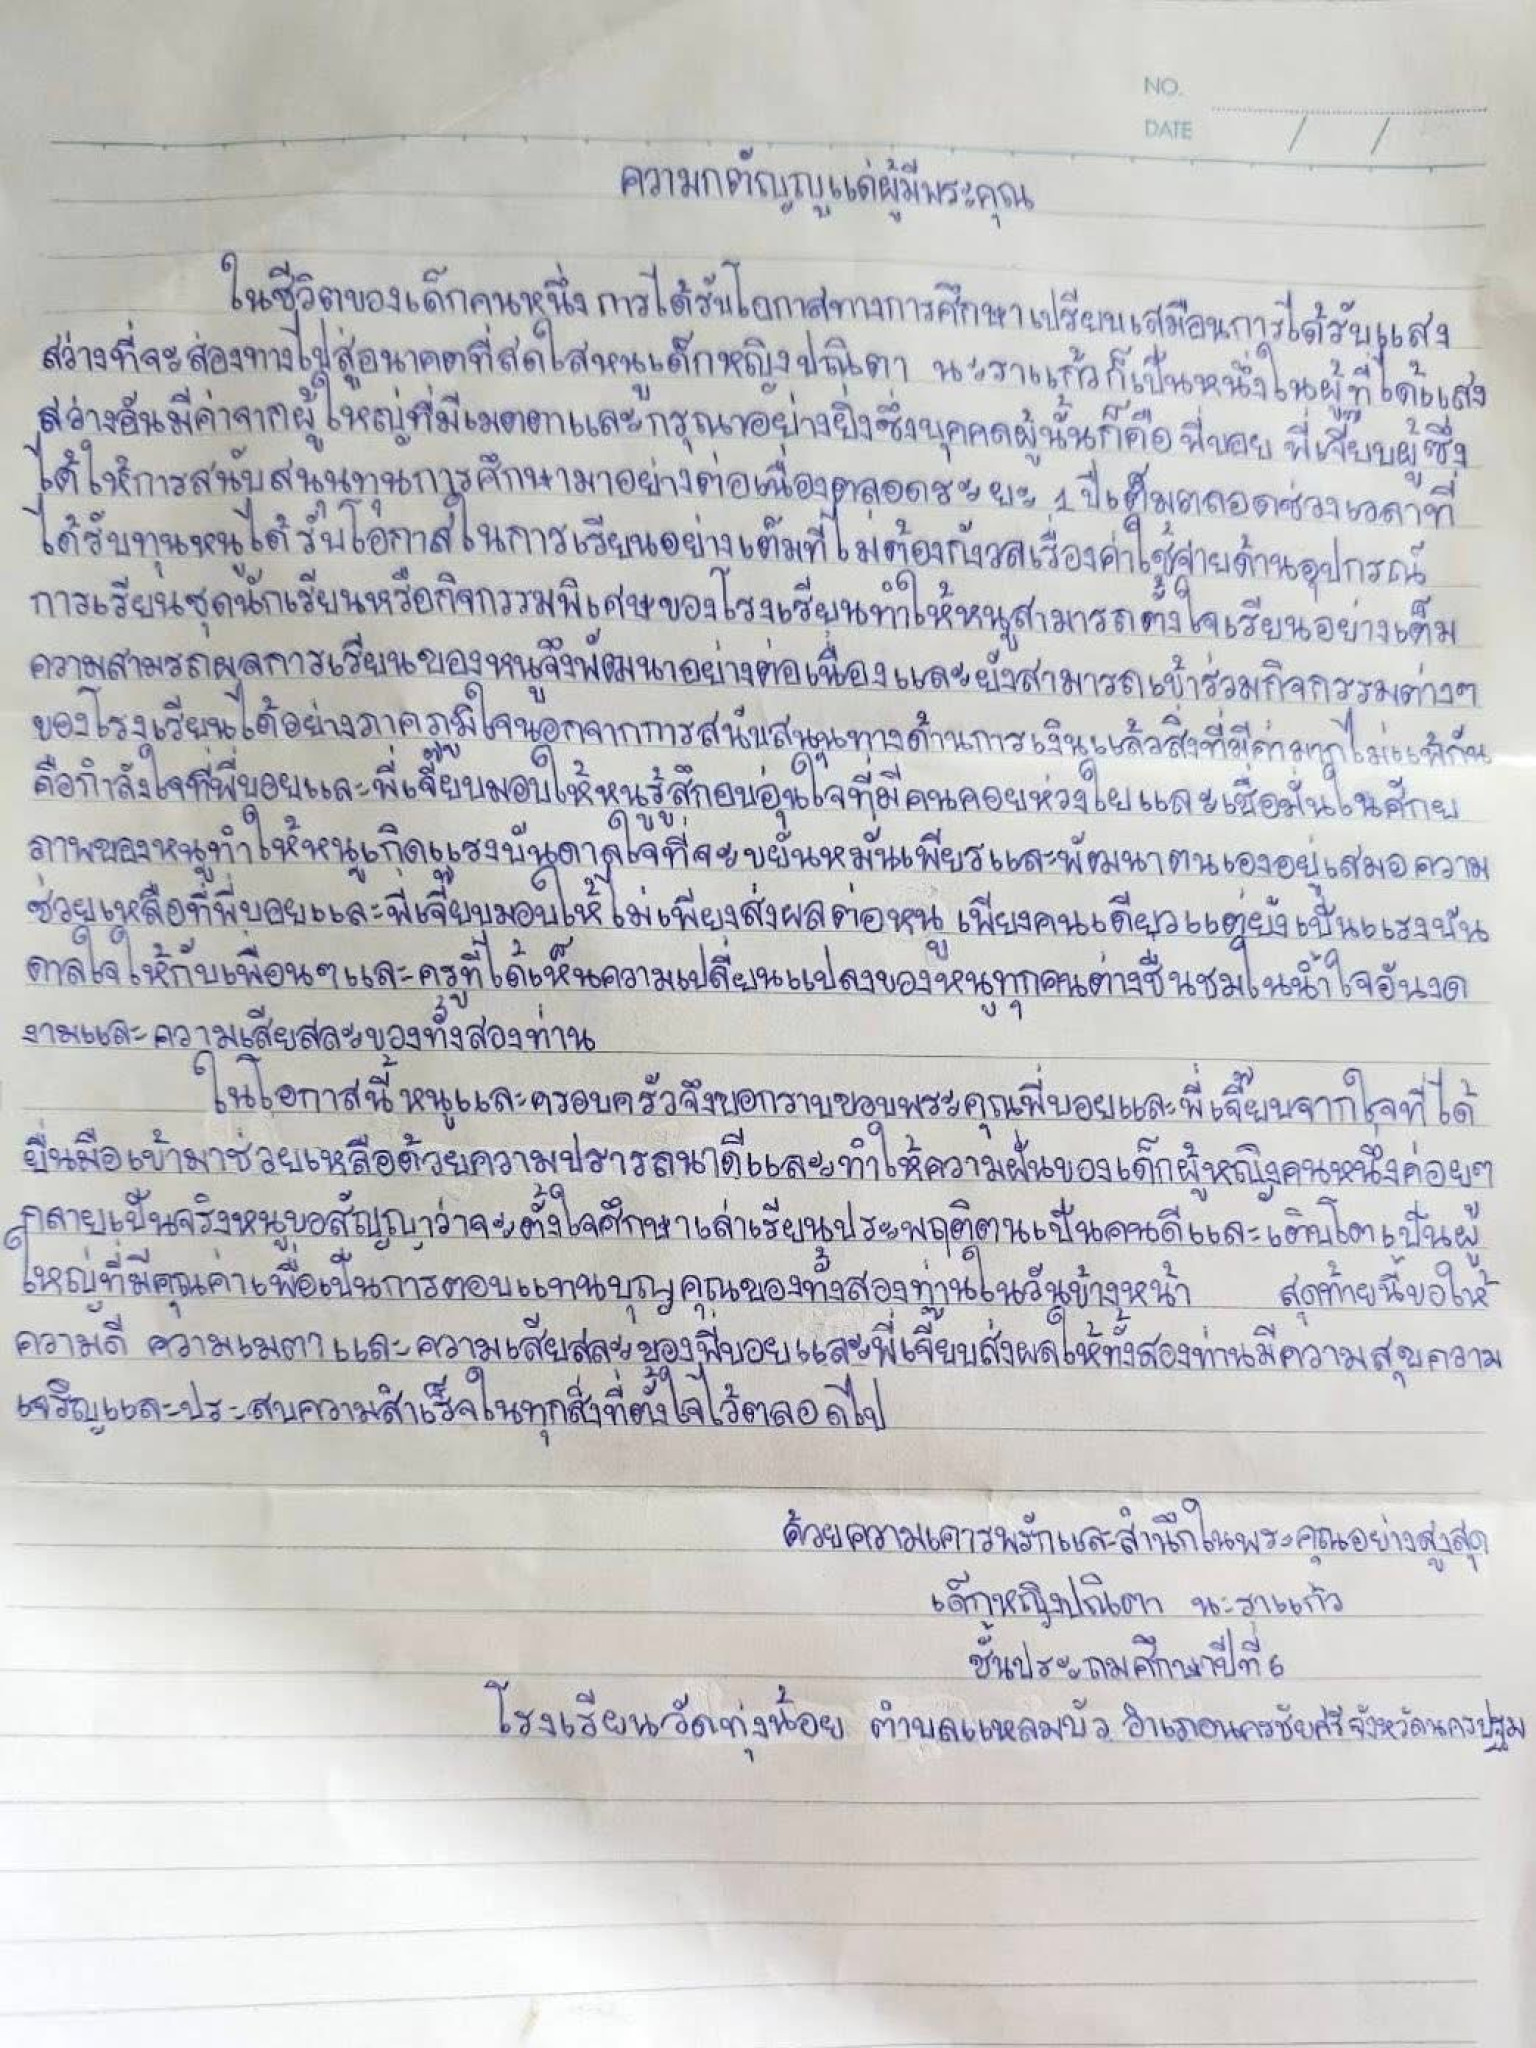 NO.
DATE / /
ความกตัญญูแด่ผู้มีพระคุณ
ในชีวิตของเด็กคนหนึ่ง การได้รับโอกาสทางการศึกษาเปรียบเสมือนการได้รับแสง
สว่างที่จะส่องทางไปสู่อนาคตที่สดใสหนูเด็กหญิงปณิตา นะราแก้วก็เป็นหนึ่งในผู้ที่ได้แสง
สว่างอันมีค่าจากผู้ใหญ่ที่มีเมตตาและกรุณาอย่างยิ่งซึ่งบุคคลผู้นั้นก็คือ พี่บอย พี่เจี๊ยบผู้ซึ่ง
ได้ให้การสนับสนุนทุนการศึกษามาอย่างต่อเนื่องตลอดระยะ 1 ปีเต็มตลอดช่วงเวลาที่
ได้รับทุนหนูได้รับโอกาสในการเรียนอย่างเต็มที่ไม่ต้องกังวลเรื่องค่าใช้จ่ายด้านอุปกรณ์
การเรียนชุดนักเรียนหรือกิจกรรมพิเศษของโรงเรียนทำให้หนูสามารถตั้งใจเรียนอย่างเต็ม
ความสามรถผลการเรียนของหนูจึงพัฒนาอย่างต่อเนื่องและยังสามารถเข้าร่วมกิจกรรมต่างๆ
ของโรงเรียนได้อย่างภาคภูมิใจนอกจากการสนับสนุนทางด้านการเงินแล้วสิ่งที่มีค่ามากไม่แพ้กัน
คือกำลังใจที่พี่บอยและพี่เจี๊ยบมอบให้หนูรู้สึกอบอุ่นใจที่มีคนคอยห่วงใยและเชื่อมั่นในศักย
ภาพของหนูทำให้หนูเกิดแรงบันดาลใจที่จะขยันหมั่นเพียรและพัฒนาตนเองอยู่เสมอความ
ช่วยเหลือที่พี่บอยและพี่เจี๊ยบมอบให้ไม่เพียงส่งผลต่อหนู เพียงคนเดียวแต่ยังเป็นแรงบัน
ดาลใจให้กับเพื่อนๆและครูที่ได้เห็นความเปลี่ยนแปลงของหนูทุกคนต่างชื่นชมในน้ำใจอันงด
งามและความเสียสละของทั้งสองท่าน
ในโอกาสนี้ หนูและครอบครัวจึงขอกราบขอบพระคุณพี่บอยและพี่เจี๊ยบจากใจที่ได้
ยื่นมือเข้ามาช่วยเหลือด้วยความปรารถนาดีและทำให้ความฝันของเด็กผู้หญิงคนหนึ่งค่อยๆ
กลายเป็นจริงหนูขอสัญญาว่าจะตั้งใจศึกษาเล่าเรียนประพฤติตนเป็นคนดีและเติบโตเป็นผู้
ใหญ่ที่มีคุณค่าเพื่อเป็นการตอบแทนบุญคุณของทั้งสองท่านในวันข้างหน้า สุดท้ายนี้ขอให้
ความดี ความเมตาและความเสียสละของพี่บอยและพี่เจี๊ยบส่งผลให้ทั้งสองท่านมีความสุขความ
เจริญและประสบความสำเร็จในทุกสิ่งที่ตั้งใจไว้ตลอดไป
ด้วยความเคารพรักและสำนึกในพระคุณอย่างสูงสุด
เด็กหญิงปณิตา นะราแก้ว
ชั้นประถมศึกษาปีที่ 6
โรงเรียนวัดทุ่งน้อย ตำบลแหลมบัว อำเภอนครชัยศรี จังหวัดนครปฐม